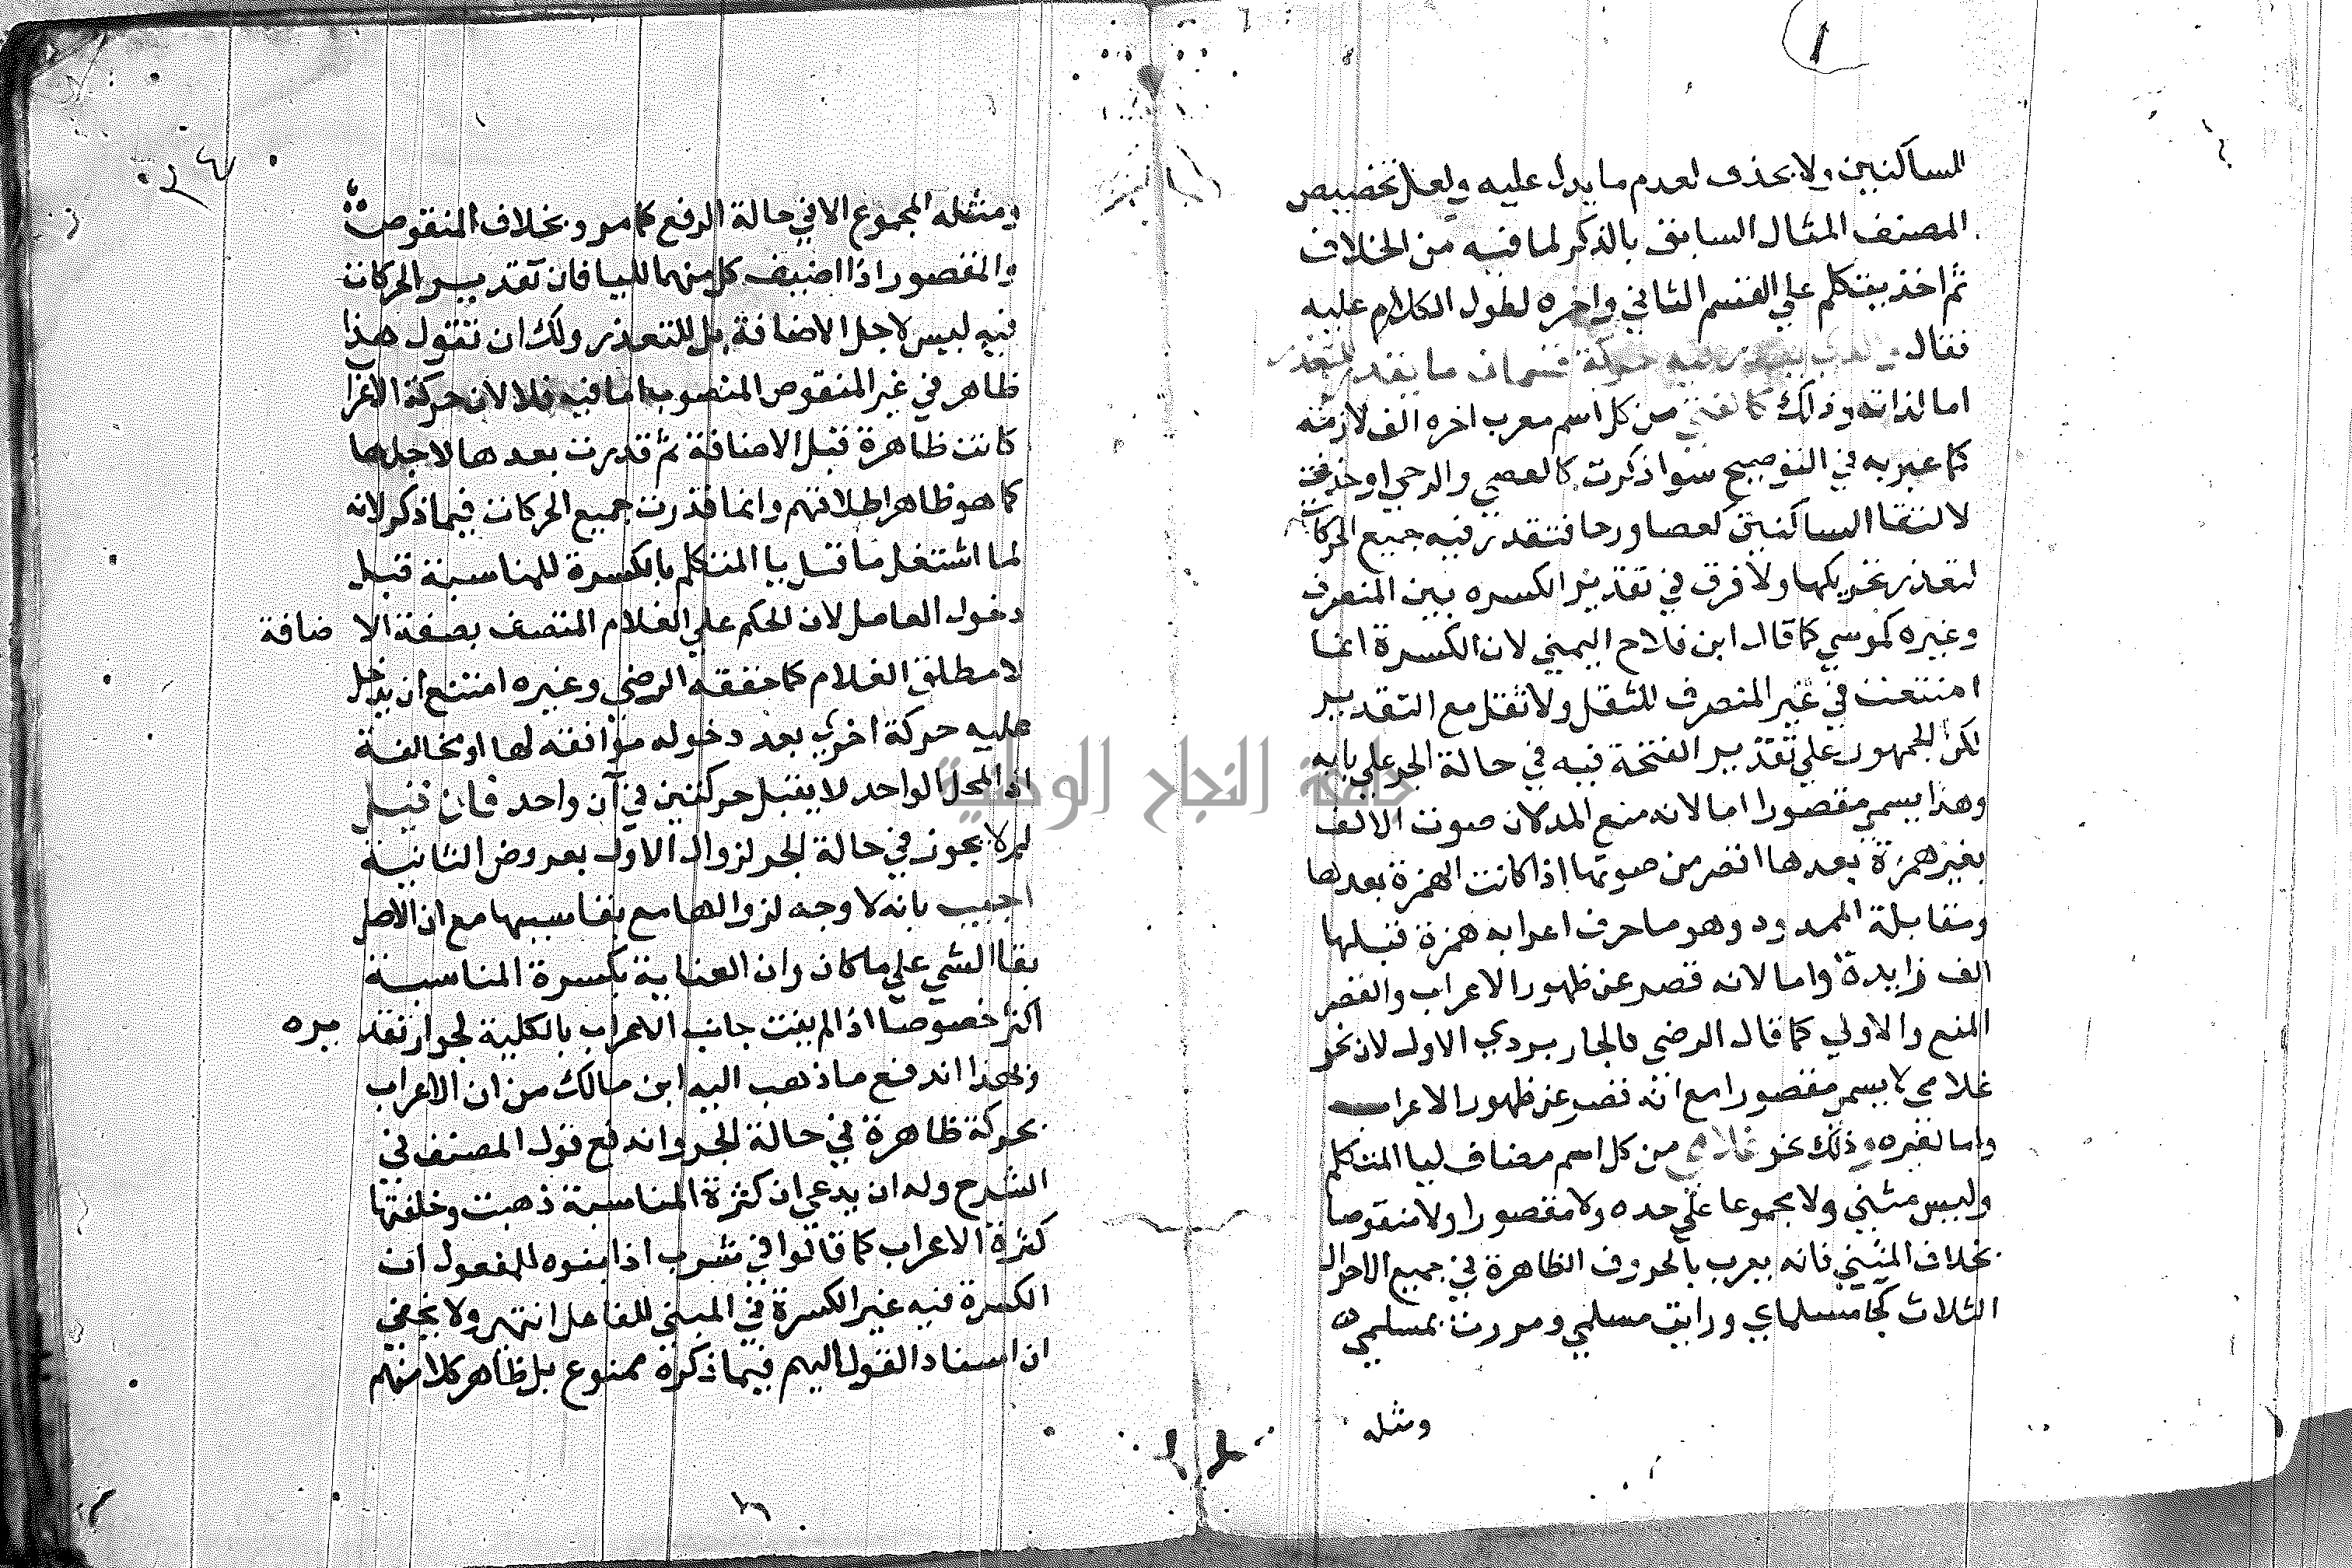 الساكنين ولا يحذف لعدم ما يدل عليه ولعل تخصيص
المصنف المثال السابق بالذكر لما فيه من الخلاف
ثم اخذ يتكلم علي القسم الثاني واخره لطول الكلام عليه
فقال حركة قسمان ما يقدر للتعذر
اما لذاته وذلك كالفتي من كل اسم معرب اخره الف لازمة
كما عبر به في التوضيح سوا ذكرت كالعصي والرحي او حذفت
لالتقا الساكنين كعصا ورحا فتقدر فيه جميع الحركات
لتعذر تحريكها ولا فرق في تقدير الكسره بين المنصرف
وغيره كموسي كما قال ابن فلاح اليمني لان الكسرة انما
امتنعت في غير المنصرف للثقل ولا ثقل مع التقدير
لكن الجمهور علي تقدير الفتحة فيه في حالة الجر علي بابه
وهذا يسمي مقصورا اما لانه منع المد لان صوت الالف
بغير همزة بعدها اقصر من صوتها اذا كانت الهمزة بعدها
ومقابلة الممدود وهو ما حرف اعرابه همزة قبلها
الف زايدة واما لانه قصر عن ظهور الاعراب والقصر
المنع والاولي كما قال الرضي فالجاربردي الاول لان نحو
غلامي لا يسمي مقصورا مع انه قصر عن ظهور الاعراب
واما لغيره وذلك نحو غلامي من كل اسم مضاف ليا المتكلم
وليس مثني ولا مجموعا علي حده ولا مقصورا ولا منقوصا
بخلاف المثني فانه يعرب بالحروف الظاهرة في جميع الاحوال
الثلاث كجا مسلماي ورايت مسلمي ومررت بمسلمي
ومثله
ومثله المجموع الا في حالة الرفع كما مر وبخلاف المنقوص
والمقصور اذا اضيف كل منهما لليا فان تقدير الحركات
فيه ليس لاجل الاضافة بل للتعذر ولك ان تقول هذا
ظاهر في غير المنقوص المنصوب اما فيه فلا لان حركة الاعرا
كانت ظاهرة قبل الاضافة ثم قدرت بعدها لاجلها
كما هو ظاهر اطلاقهم وانما قدرت جميع الحركات فيما ذكر لانه
لما اشتغل ما قبل يا المتكلم بالكسرة للمناسبة قبل
دخول العامل لان الحكم علي الغلام المتصف بصفة الا ضافة
لا مطلق الغلام كما حققه الرضي وغيره امتنع ان يدخل
عليه حركة اخري بعد دخوله موافقه لها او مخالفة
اذ المحل الواحد لا يقبل حركتين في آن واحد فان قيل
لم لا يجوز في حالة الجر لزوال الاول بعروض الثانية
اجيب بانه لا وجه لزوالها مع بقا سببها مع ان الاصل
بقا الشي علي ما كان وان العناية بكسرة المناسبة
اكثر خصوصا اذ لم يفت جانب الاعراب بالكلية لجواز تقد يره
وبهذا اندفع ما ذهب اليه ابن مالك من ان الاعراب
بحركة ظاهرة في حالة الجر واندفع قول المصنف في
الشرح وله ان يدعي ان كثرة المناسبة ذهبت وخلفتها
كثرة الاعراب كما قالوا في شرب اذا بنوه للمفعول ان
الكسرة فيه غير الكسرة في المبني للفاعل انتهي ولا يخفي
ان اسناد القول اليهم فيما ذكره ممنوع بل ظاهر كلامهم
جامعة النجاح الوطنية